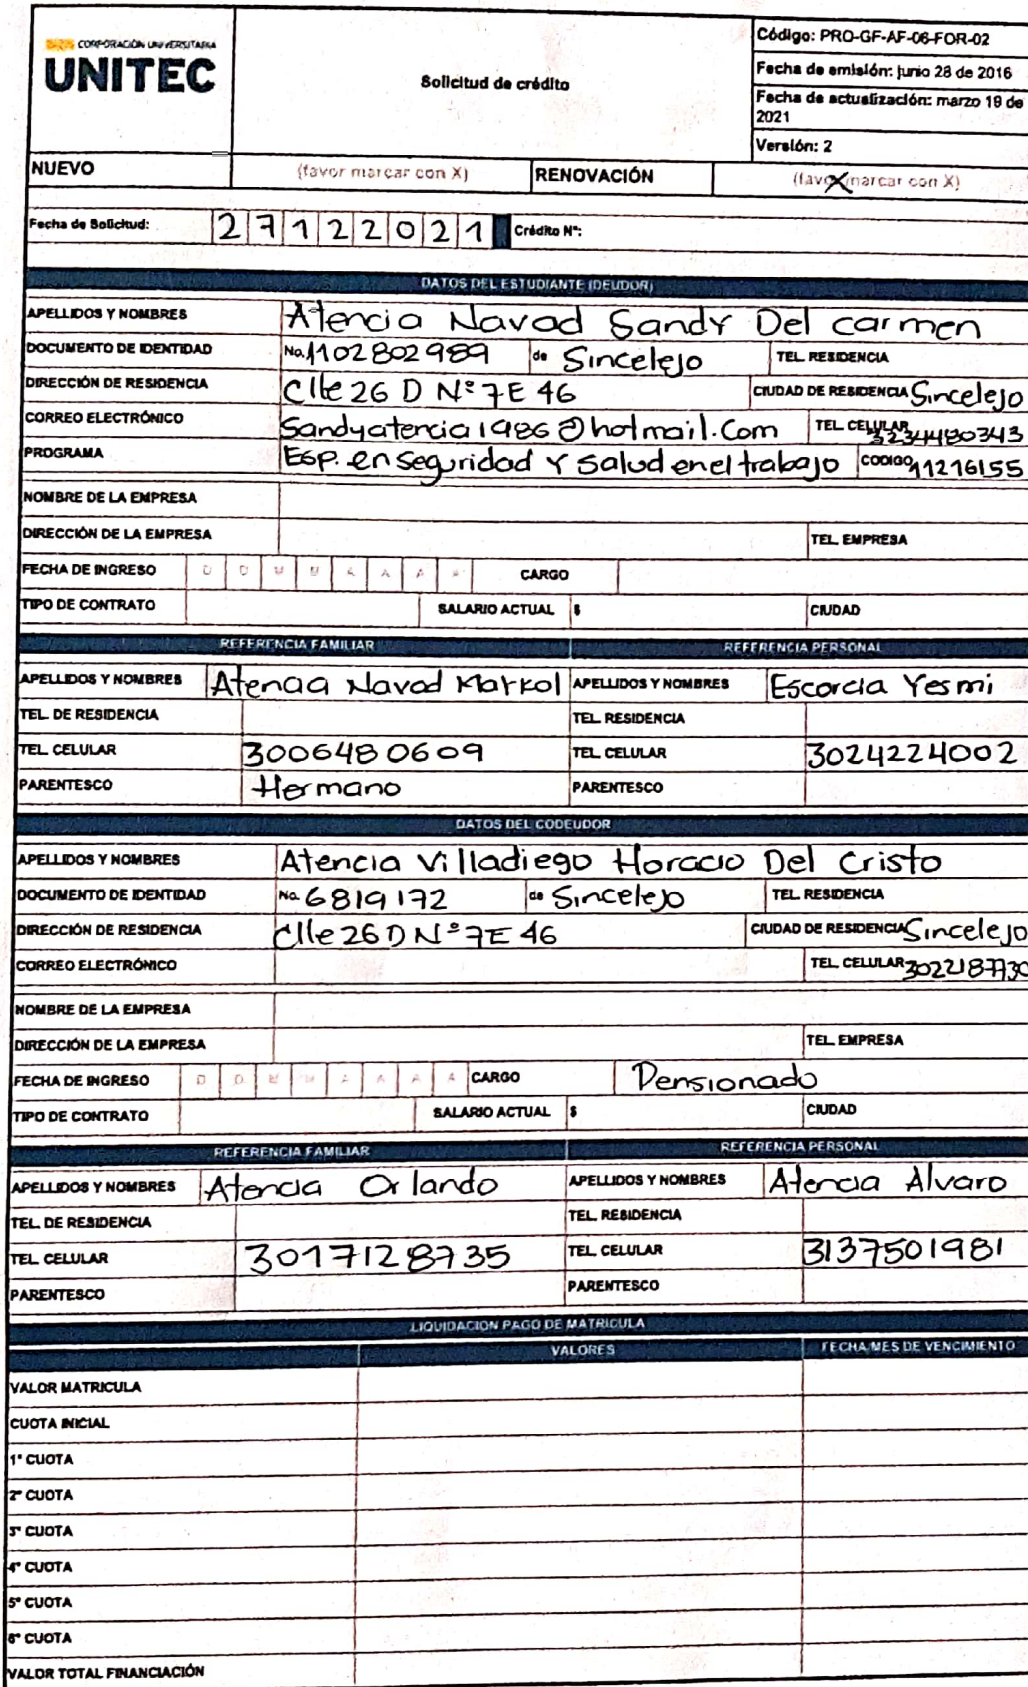 CORPORACIÓN UNIVERSITARIA
UNITEC
Solicitud de crédito
Código: PRO-GF-AF-06-FOR-02
Fecha de emisión: junio 28 de 2016
Fecha de actualización: marzo 19 de 2021
Versión: 2
NUEVO (favor marcar con X) RENOVACIÓN (favor marcar con X) X
Fecha de Solicitud: 2 7 1 2 2 0 2 1 Crédito N°:
DATOS DEL ESTUDIANTE (DEUDOR)
APELLIDOS Y NOMBRES Atencia Navad Sandy Del carmen
DOCUMENTO DE IDENTIDAD No. 1102802989 de Sincelejo TEL. RESIDENCIA
DIRECCIÓN DE RESIDENCIA Clle 26 D N° 7E 46 CIUDAD DE RESIDENCIA Sincelejo
CORREO ELECTRÓNICO Sandyatencia1986@hotmail.Com TEL. CELULAR 3234480343
PROGRAMA Esp. en seguridad Y Salud en el trabajo CODIGO 11216155
NOMBRE DE LA EMPRESA
DIRECCIÓN DE LA EMPRESA TEL. EMPRESA
FECHA DE INGRESO D D M M A A A A CARGO
TIPO DE CONTRATO SALARIO ACTUAL $ CIUDAD
REFERENCIA FAMILIAR REFERENCIA PERSONAL
APELLIDOS Y NOMBRES Atencia Navad Markol APELLIDOS Y NOMBRES Escorcia Yesmi
TEL. DE RESIDENCIA TEL. RESIDENCIA
TEL. CELULAR 3006480609 TEL. CELULAR 3024224002
PARENTESCO Hermano PARENTESCO
DATOS DEL CODEUDOR
APELLIDOS Y NOMBRES Atencia Villadiego Horacio Del Cristo
DOCUMENTO DE IDENTIDAD No. 6819172 de Sincelejo TEL. RESIDENCIA
DIRECCIÓN DE RESIDENCIA Clle 26 D N° 7E 46 CIUDAD DE RESIDENCIA Sincelejo
CORREO ELECTRÓNICO TEL. CELULAR 3022187730
NOMBRE DE LA EMPRESA
DIRECCIÓN DE LA EMPRESA TEL. EMPRESA
FECHA DE INGRESO D D M M A A A A CARGO Pensionado
TIPO DE CONTRATO SALARIO ACTUAL $ CIUDAD
REFERENCIA FAMILIAR REFERENCIA PERSONAL
APELLIDOS Y NOMBRES Atencia Orlando APELLIDOS Y NOMBRES Atencia Alvaro
TEL. DE RESIDENCIA TEL. RESIDENCIA
TEL. CELULAR 3017128735 TEL. CELULAR 3137501981
PARENTESCO PARENTESCO
LIQUIDACION PAGO DE MATRICULA
VALORES FECHA/MES DE VENCIMIENTO
VALOR MATRICULA
CUOTA INICIAL
1° CUOTA
2° CUOTA
3° CUOTA
4° CUOTA
5° CUOTA
6° CUOTA
VALOR TOTAL FINANCIACIÓN